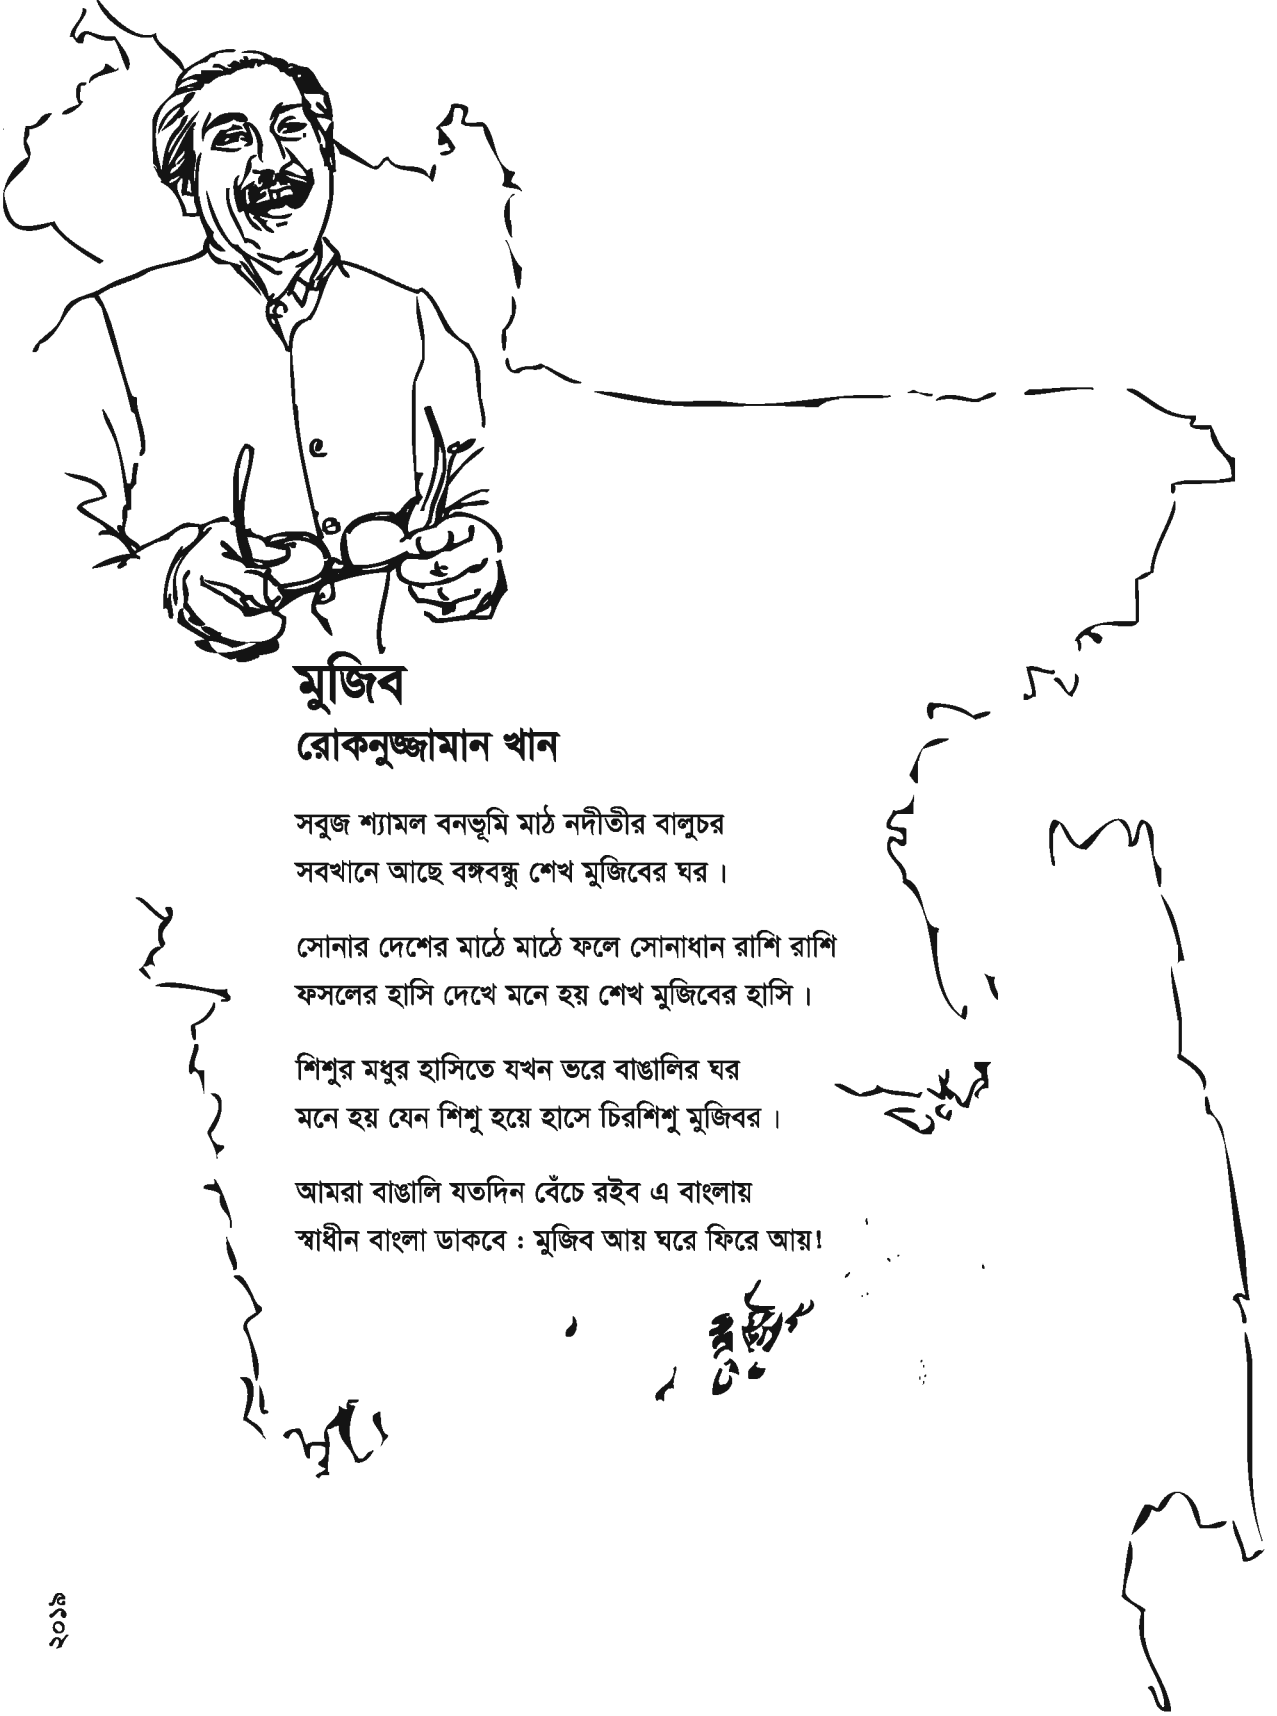 মুজিব
রোকনুজ্জামান খান
সবুজ শ্যামল বনভূমি মাঠ নদীতীর বালুচর
সবখানে আছে বঙ্গবন্ধু শেখ মুজিবের ঘর।
সোনার দেশের মাঠে মাঠে ফলে সোনাধান রাশি রাশি
ফসলের হাসি দেখে মনে হয় শেখ মুজিবের হাসি।
শিশুর মধুর হাসিতে যখন ভরে বাঙালির ঘর
মনে হয় যেন শিশু হয়ে হাসে চিরশিশু মুজিবর।
আমরা বাঙালি যতদিন বেঁচে রইব এ বাংলায়
স্বাধীন বাংলা ডাকবে : মুজিব আয় ঘরে ফিরে আয়!
২০১৯